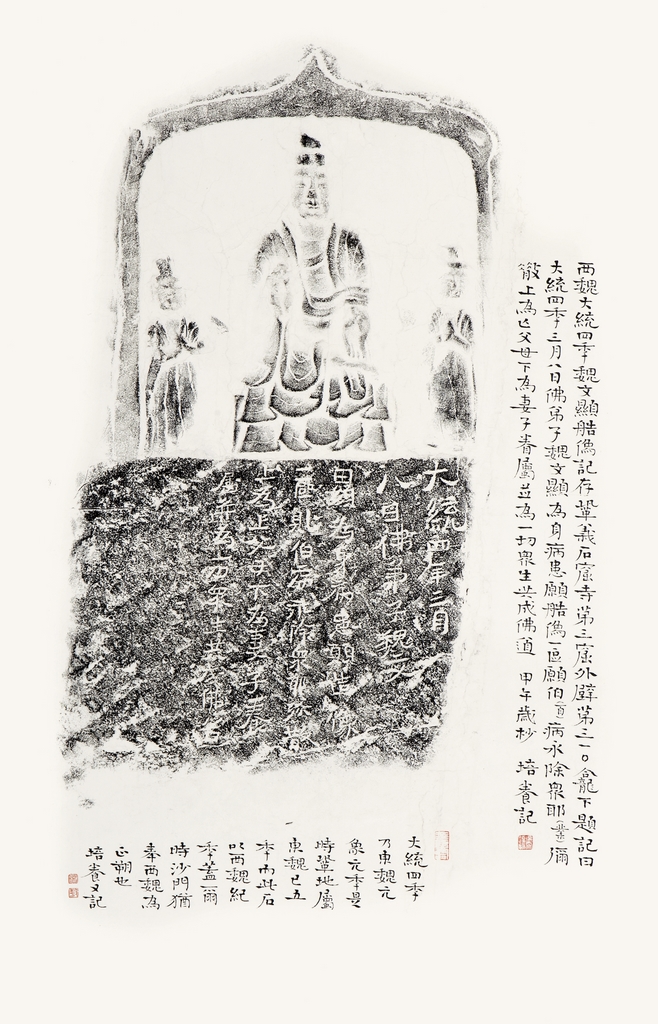 西魏大統四年魏文顯造像記存鞏義石窟寺第三窟外壁第三一〇龕下題記曰
大統四年三月八日佛弟子魏文顯為身病患願造像一區願伯(百)病永除眾耶(業)彌
散上為亡父母下為妻子眷屬並為一切眾生共成佛道 甲午歲杪 培養記
大統四年三月
八日佛弟子魏文
顯為身病患願造像
一區願伯病永除眾耶弥散
上為亡父母下為妻子眷
屬并為一切眾生共
大統四年
乃東魏元
象元年是
時鞏地屬
東魏已五
年而此石
以西魏紀
年蓋爾
時沙門猶
奉西魏為
正朔也
培養又記